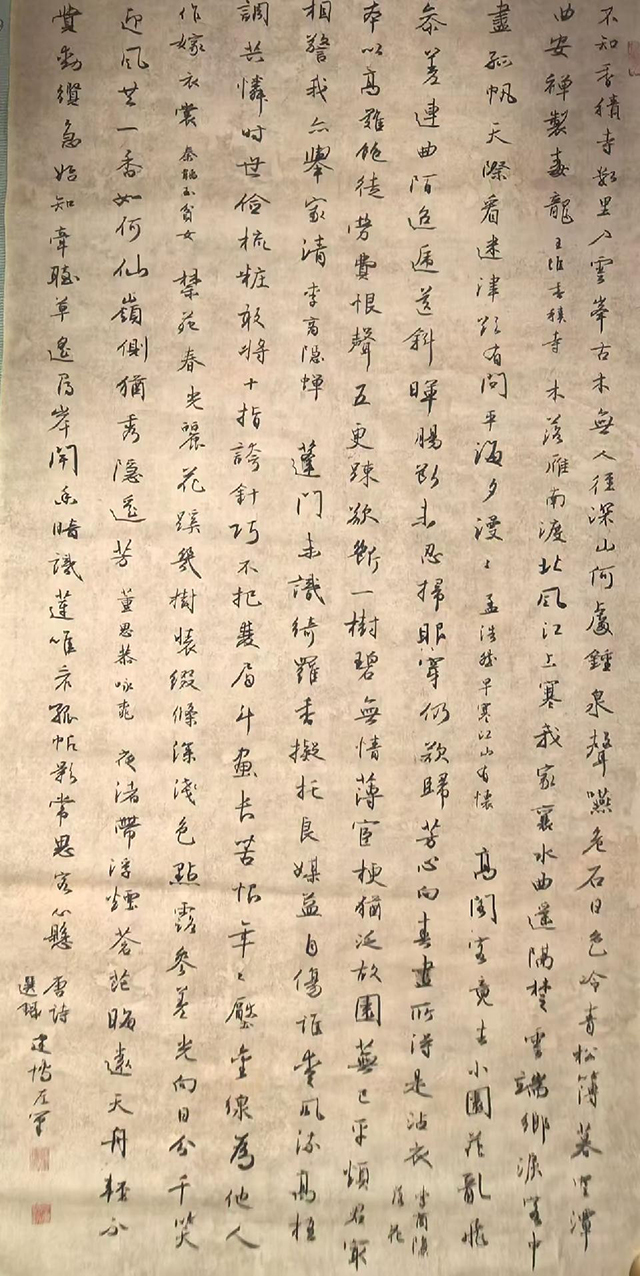 不知香積寺數里入雲峯古木無人徑深山何處鍾泉聲咽危石日色冷青松薄暮空潭
曲安禪製毒龍王維香積寺 木落雁南渡北風江上寒我家襄水曲遥隔楚雲端鄉淚客中
盡孤帆天際看迷津欲有問平海夕漫々孟浩然早寒江山有懷 高閣客竟去小園花亂飛
參差連曲陌迢遞送斜暉腸斷未忍掃眼穿仍欲歸芳心向春盡所得是沾衣李商隱落花
本以高難飽徒勞費恨聲五更疎欲斷一樹碧無情薄宦梗猶泛故園蕪已平煩君最
相警我亦舉家清李商隐蟬 蓬門未識綺羅香擬托良媒益自傷誰愛風流高格
調共憐時世儉梳粧敢將十指誇針巧不把雙眉斗畫長苦恨年々壓金線為他人
作嫁衣裳秦韜玉貧女 禁苑春光麗花蹊幾樹裝綴條深淺色點露參差光向日分千笑
迎風共一香如何仙嶺側猶秀隐遥芳董思恭咏桃 夜渚帶浮煙蒼茫晦遠天舟輕不
覺動纜急始知牽聽草遥尋岸聞香暗識蓮唯言孤帆影常思客心懸
唐詩
選録 建